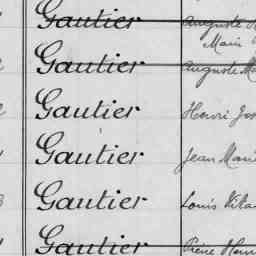 Gautier Auguste
Marie
Gautier Auguste
Gautier Henri
Gautier Jean Marie
Gautier Louis
Gautier